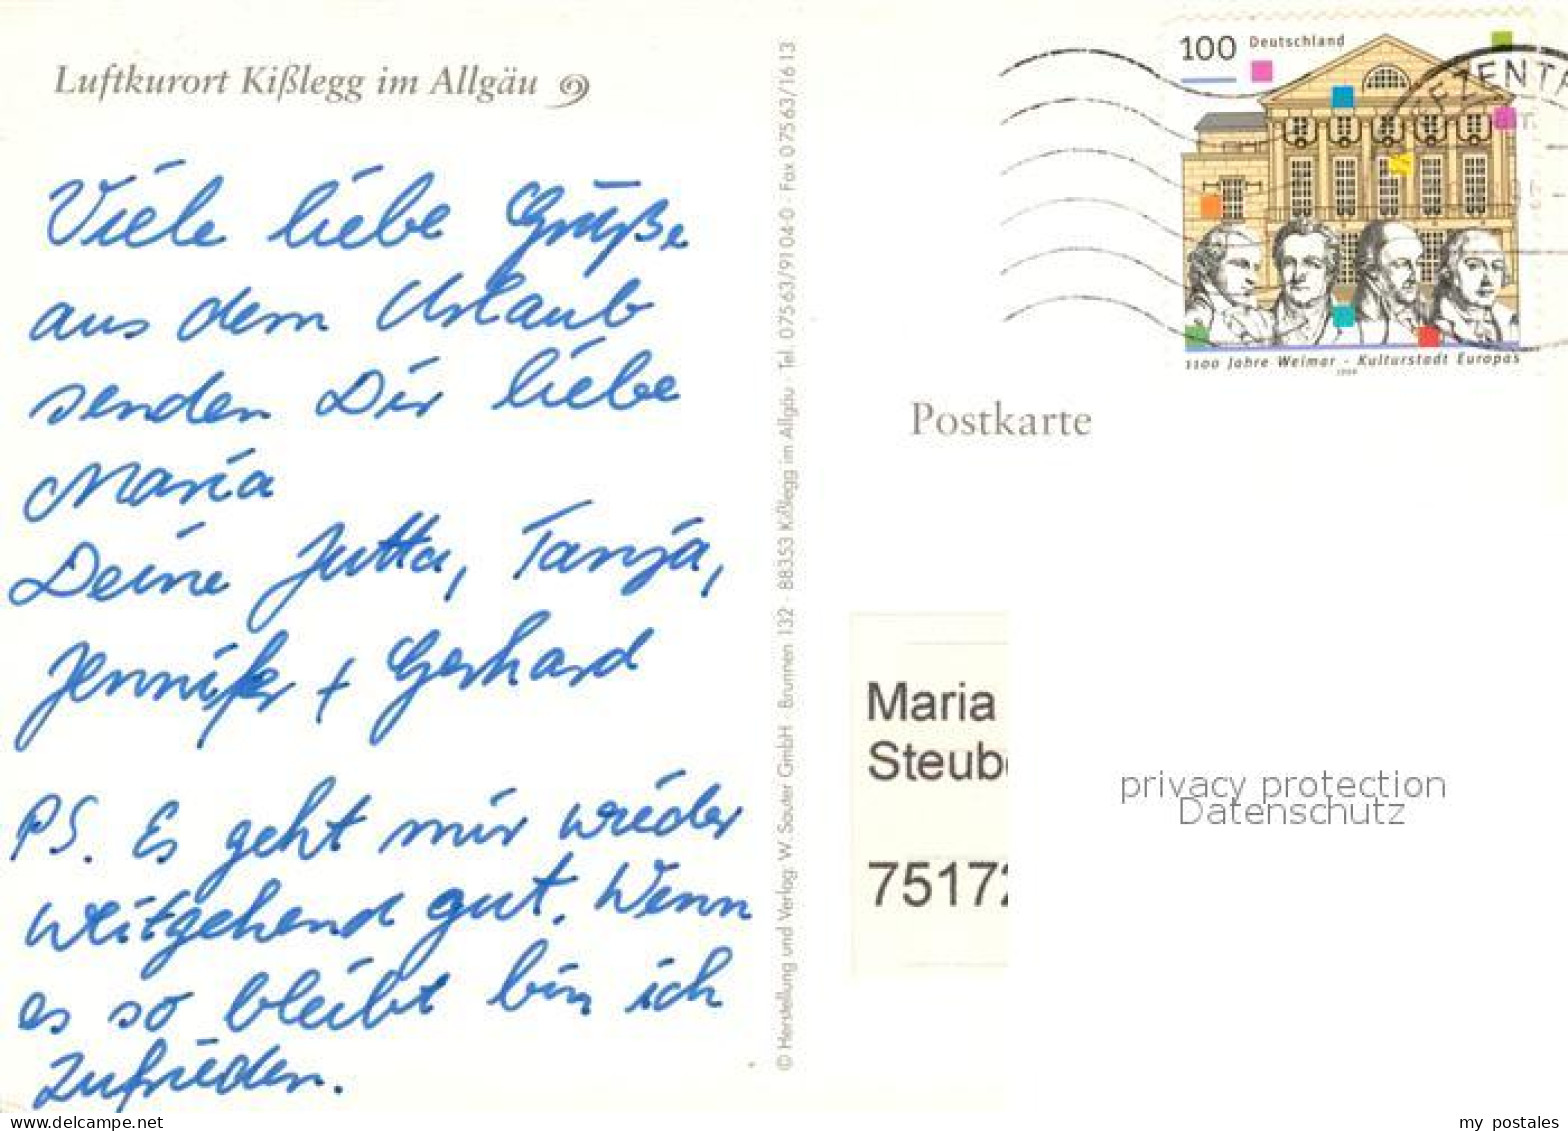 Luftkurort Kißlegg im Allgäu
Viele liebe Grüße
aus dem Urlaub
senden Dir liebe
Maria
Deine Jutta, Tanja,
Jennifer + Gerhard
PS. Es geht mir wieder
weitgehend gut. Wenn
es so bleibt bin ich
zufrieden.
© Herstellung und Verlag: W. Sauter GmbH · Brunnen 132 · 88353 Kißlegg im Allgäu · Tel. 07563/9104-0 · Fax 07563/1613
100 Deutschland
EFZENTR
1100 Jahre Weimar - Kulturstadt Europas
1999
Postkarte
Maria
Steub
7517
privacy protection
Datenschutz
delcampe.net
my_postales